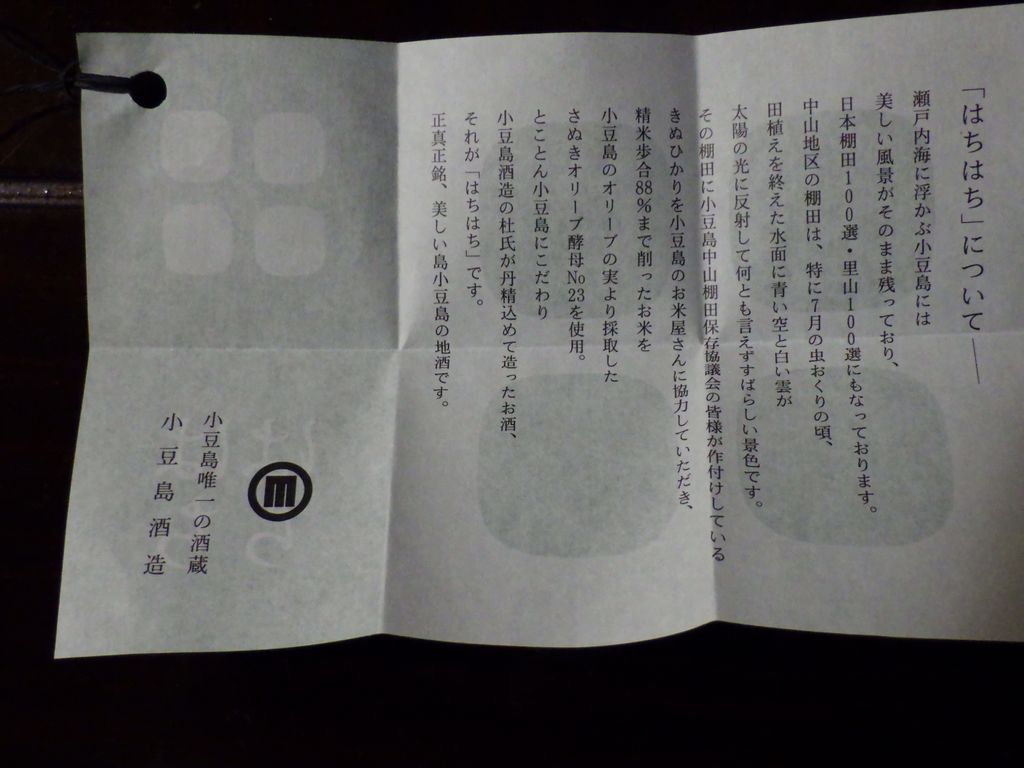 「はちはち」について――
瀬戸内海に浮かぶ小豆島には
美しい風景がそのまま残っており、
日本棚田100選・里山100選にもなっております。
中山地区の棚田は、特に7月の虫おくりの頃、
田植えを終えた水面に青い空と白い雲が
太陽の光に反射して何とも言えずすばらしい景色です。
その棚田に小豆島中山棚田保存協議会の皆様が作付けしている
きぬひかりを小豆島のお米屋さんに協力していただき、
精米歩合88%まで削ったお米を
小豆島のオリーブの実より採取した
さぬきオリーブ酵母No23を使用。
とことん小豆島にこだわり
小豆島酒造の杜氏が丹精込めて造ったお酒、
それが「はちはち」です。
正真正銘、美しい島小豆島の地酒です。
小豆島唯一の酒蔵
小豆島酒造